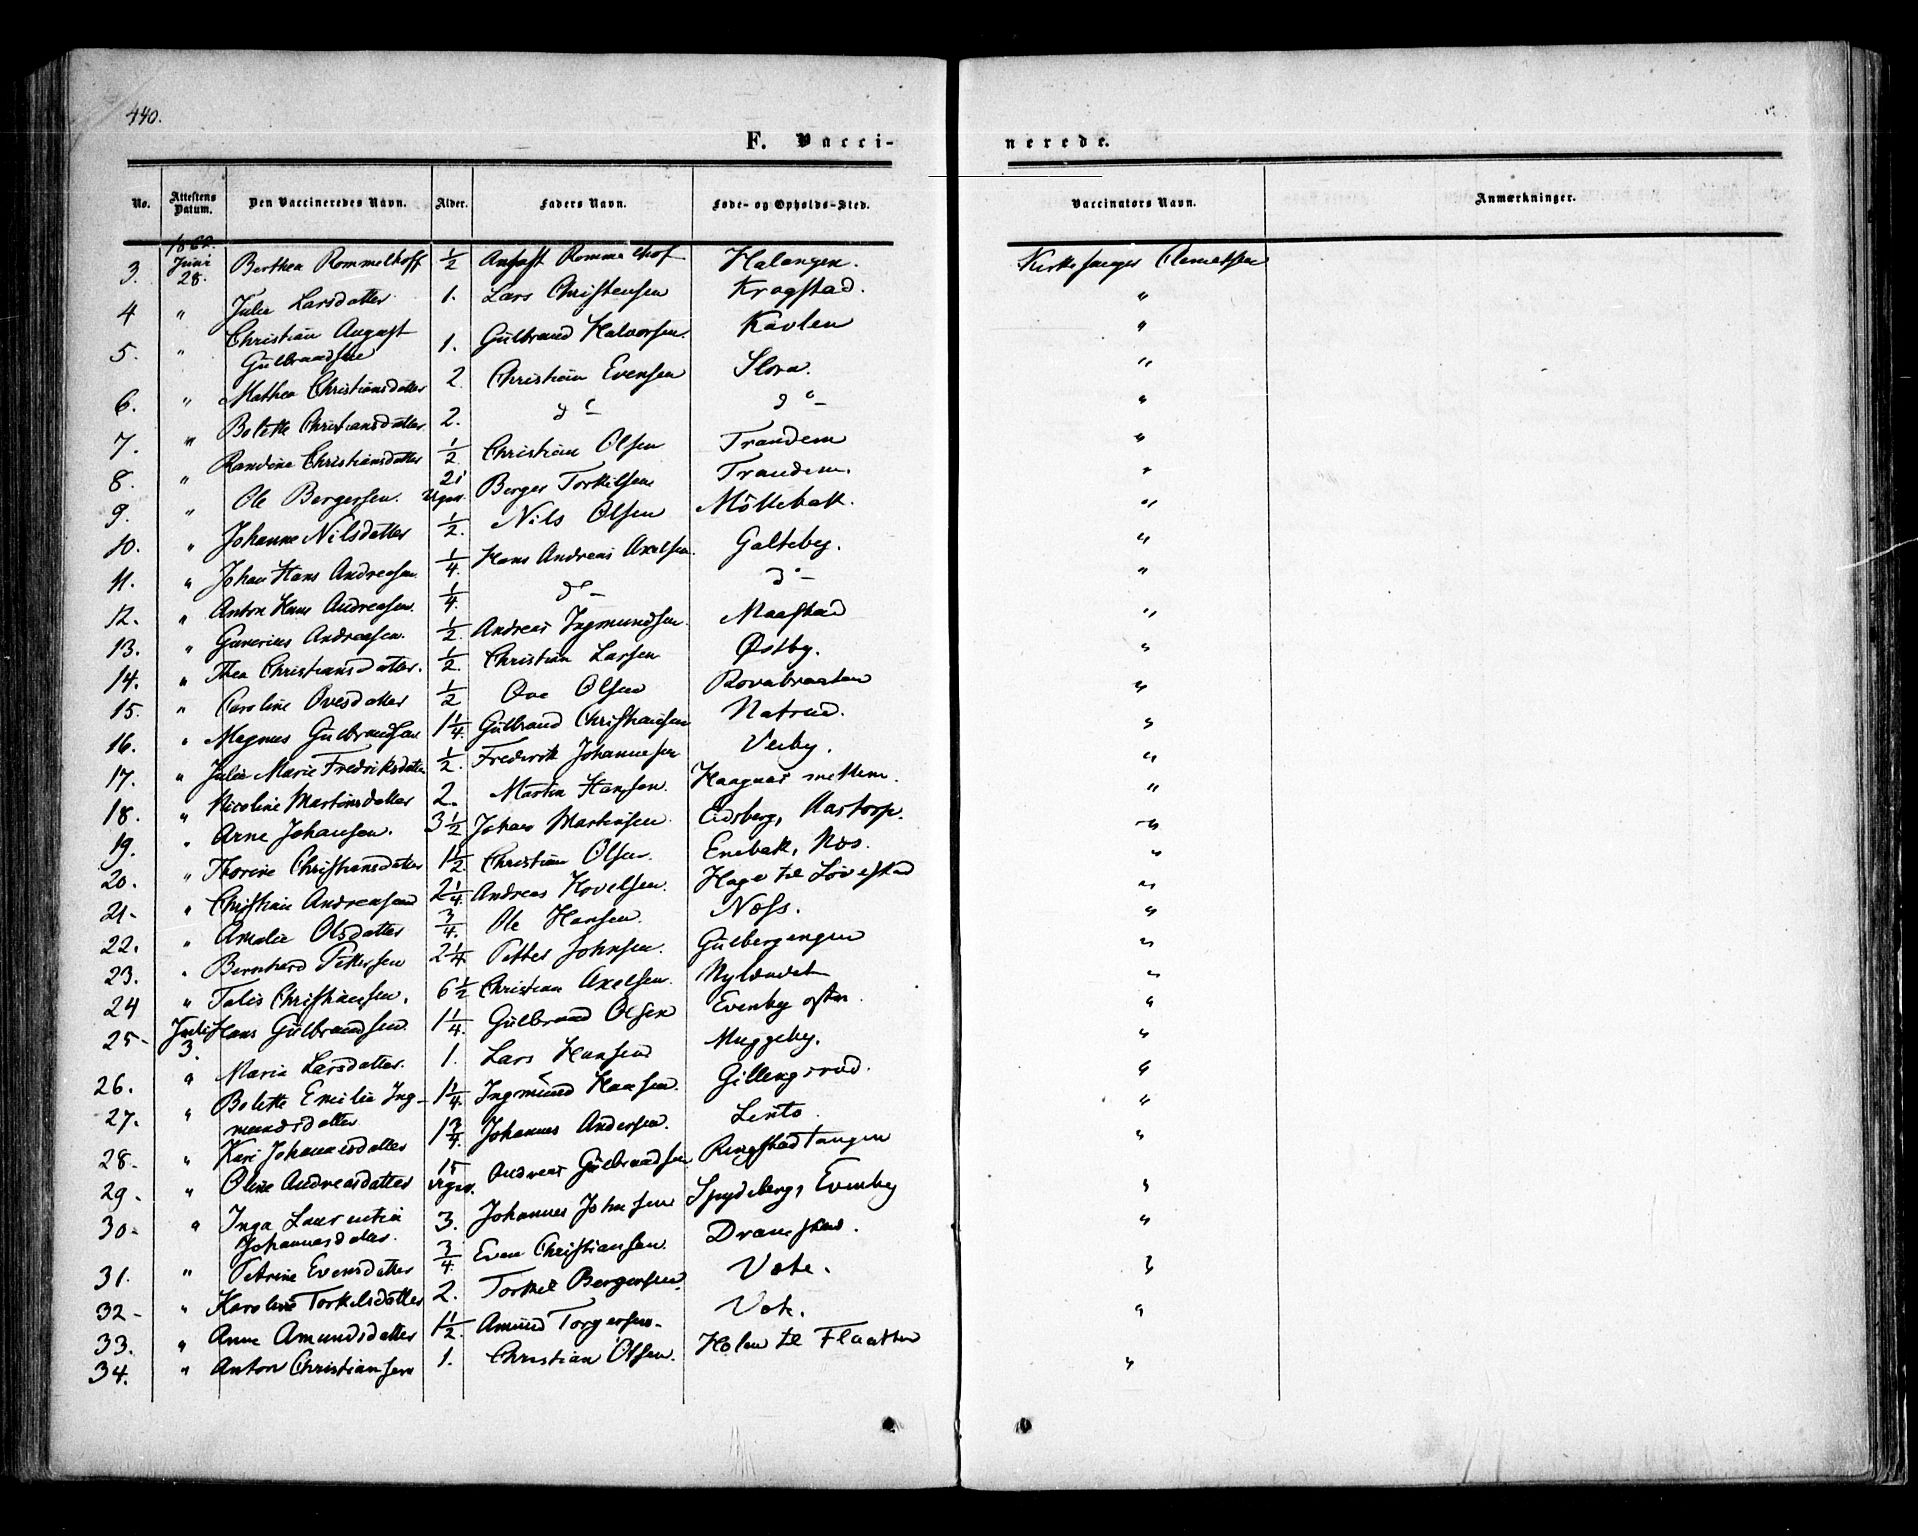 440.
F. Vacci-
nerede.
No. Attestens Datum. Den Vaccineredes Navn. Alder. Faders Navn. Føde- og Opholds-Sted. Vaccinators Navn. Anmærkninger.
1862.
3. Juni 28. Berthea Rommelhoff 1/2 August Rommelhof Halangen. Kirkesanger Clemetsen
4 " Julie Larsdatter 1. Lars Christensen Krogstad. "
5. " Christian August Gulbrandsen 1. Gulbrand Halvorsen. Kavlen "
6. " Mathea Christiansdatter 2. Christian Evensen Slora. "
7. " Bolette Christiansdatter 2. do - do - "
8. " Randine Christiansdatter 1/2 Christian Olsen Trandem "
9. " Ole Bergersen. 21 Uger. Berger Torkelsen Trandem. "
10. " Johanne Nilsdatter 1/2. Nils Olsen Möllebak. "
11. " Johan Hans Andreasen. 1/4. Hans Andreas Axelsen. Galteby. "
12. " Anton Hans Andreasen. 1/4. do - do - "
13. " Gunerius Andreasen. 1/2. Andreas Ingmundsen. Maastad "
14. " Thea Christiansdatter. 1/2. Christian Larsen Østby. "
15. " Caroline Ovesdatter 1/2 Ove Olsen Rovabraaten "
16. " Magnus Gulbrandsen 1 1/4. Gulbrand Christiansen Natrud. "
17. " Julie Marie Fredriksdatter 1/2. Frederik Johannesen Verby. "
18. " Nicoline Martinsdatter 2. Martin Hansen. Haagnas mellem. "
19. " Arne Johansen. 3 1/2 Johan Martinsen Eidsberg, Aastorp. "
20. " Thorine Christiansdatter 1 1/2. Christian Olsen. Enebak, Nos. "
21- " Christian Andreasen 2 1/4. Andreas Hovelsen. Hage til Løvestad "
22. " Amalie Olsdatter 3/4. Ole Hansen. Næss. "
23. " Bernhard Pettersen 2 1/4 Petter Johnsen. Gulbergengen "
24 " Christiansen. 6 1/2 Christian Axelsen. Nylændet "
25- Juli 3. Hans Gulbrandsen 1 1/4. Gulbrand Olsen Evenby østre. "
26. " Maria Larsdatter. 1. Lars Hansen Muggeby. "
27. " Bolette Emilie Ingmundsdatter 1 1/4. Ingmund Hansen. Gillengsrud. "
28. " Kari Johannesdatter 1 3/4. Johannes Andersen. Lento. "
29. " Oline Andreasdatter 15 Uger. Andreas Gulbrandsen Ringstadtangen "
30- " Inga Laurentia Johannesdatter. 3. Johannes Johnsen Spydeberg, Evenby "
31. " Petrine Evensdatter 3/4. Even Christiansen. Dramstad. "
32- " Karoline Torkelsdatter 2. Torkel Bergersen. Vote. "
33. " Anne Amundsdatter 1 1/2. Amund Torgersen- Vote. "
34. " Anton Christiansen 1. Christian Olsen. Holen til Flaatten "